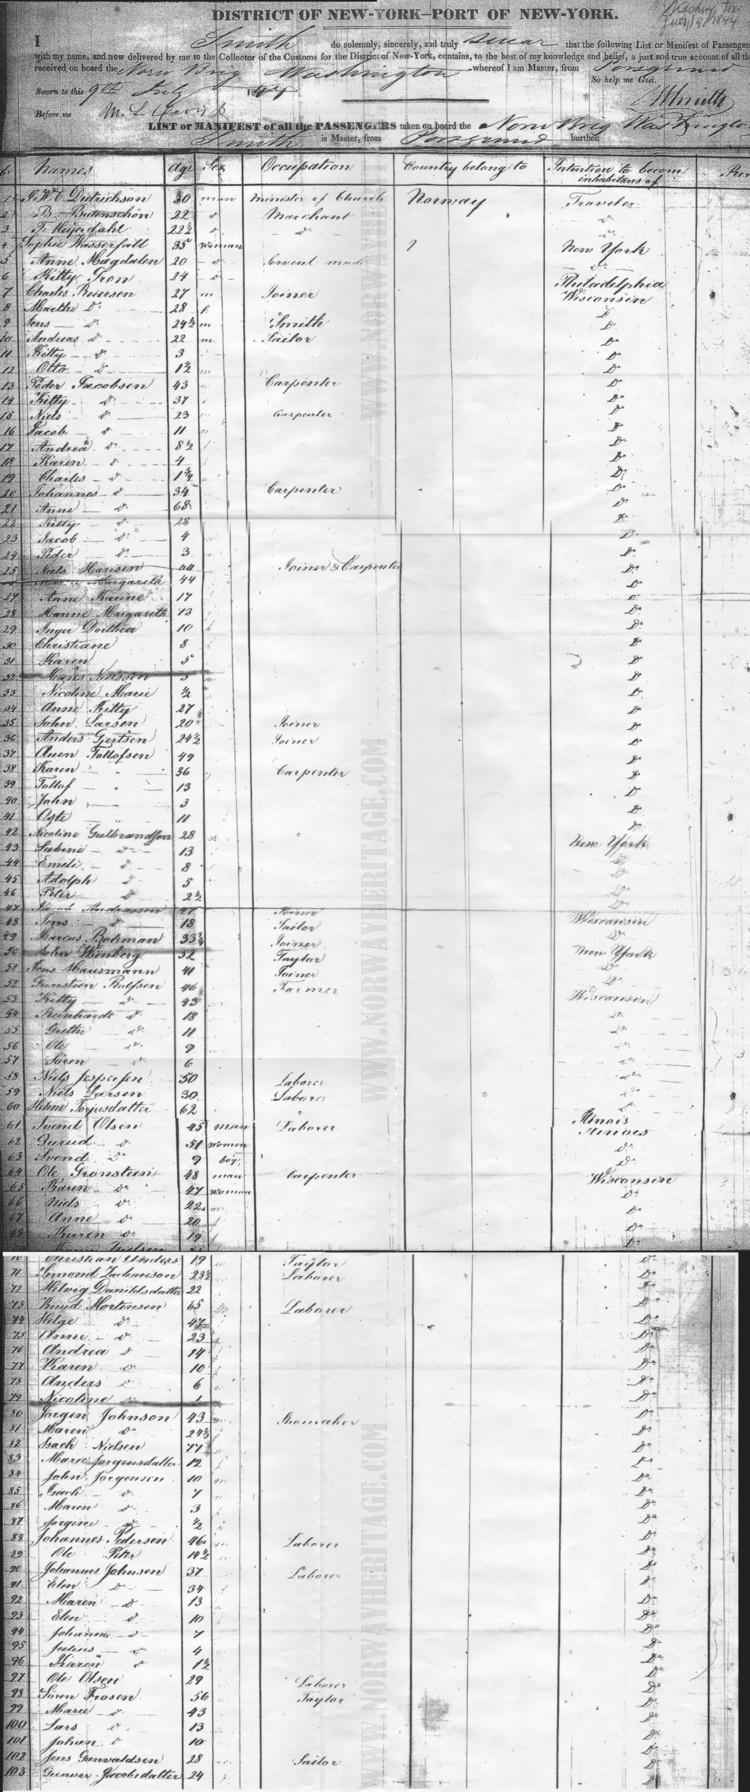 DISTRICT OF NEW-YORK—PORT OF NEW-YORK.
I Smith do solemnly, sincerely, and truly swear that the following List or Manifest of Passengers
with my name, and now delivered by me to the Collector of the Customs for the District of New-York, contains, to the best of my knowledge and belief, a just and true account of all the
received on board the Norw Brig Washington whereof I am Master, from
So help me God.
Sworn to this 9th July
Before me
LIST or MANIFEST of all the PASSENGERS taken on board the Norw Brig Washington
Smith is Master, from burthen
Names Age Sex Occupation Country belong to Intention to becom inhabitans of
1 Dietrichson 30 man Minister of Church Norway Traveler
2 B. Buttenschön 22 Do Marchant Do
3 22½ Do Do
4 Sophie Wasserfall 35 woman New York
5 Anne Magdalen 20 Do
6 Kitty Iron 24 Do Philadelphia
7 Charles Reiersen 27 m Joiner Wisconsin
8 Marthe Do 28 f Do
9 Jens Do 24½ m Smith Do
10 Andreas Do 22 m Sailor Do
11 Kitty Do 3 Do
12 Otto Do 1½ Do
13 Peder Jacobsen 43 Carpenter Do
14 Kitty Do 37 Do
15 Niels Do 23 Carpenter Do
16 Jacob Do 11 Do
17 Andrea Do 8½ Do
18 Karen Do 4 Do
19 Charles Do 1¾ Do
20 Johannes Do 34 Carpenter Do
21 Anne Do 68 Do
22 Kitty Do 28 Do
23 Jacob Do 4 Do
24 Peder Do 3 Do
25 Niels Hansen 44 Joiner & Carpenter Do
Margareth 44 Do
27 Anne Karine 17 Do
28 Hanne Margareth 13 Do
29 Inger Dorthea 10 Do
30 Christiane 8 Do
31 Karen 5 Do
32 Hans Nielsen 3 Do
33 Nicoline Marie ½ Do
34 Anne Kitty 27 Do
35 John Larsen 20 Joiner Do
36 Anders Gjertsen 24½ Joiner Do
37 Tollofsen 49 Do
38 Karen 36 Carpenter Do
39 Tollof 13 Do
40 John 3 Do
41 11 Do
42 Nicoline Gulbrandsen 28 New York
43 Sabine Do 13 Do
44 Emile Do 8 Do
45 Adolph Do 5 Do
46 Peter Do 2½ Do
47 Andreassen 21 Joiner Wisconsin
48 Jens Do 18 Sailor Do
49 Marcus 33¾ Joiner New York
50 John 32 Taylor Do
51 Jens Hausmann 41 Joiner Do
52 Gunstion Rolfsen 46 Farmer Wisconsin
53 Kitty Do 43 Do
54 Reinhardt Do 18 Do
55 Grethe Do 11 Do
56 Ole Do 9 Do
57 Sören Do 6 Do
58 Niels Jespersen 50 Laborer Do
59 Niels Larsen 30 Labore Do
60 Torjusdatter 62 Illinois
61 Svend Olsen 45 man Laborer Illinois
62 Gurud Do 51 woman Do
63 Svend Do 9 boy Do
64 Ole Gronsteen 48 man Carpenter Wisconsin
65 Karen Do 47 woman Do
66 Niels Do 22 Do
67 Anne Do 20 Do
68 Karen Do 19 Do
70 Christian Anders 19 Taylor Do
71 Amond Zachariason 23½ Laborer Do
72 Helvig Danielsdatter 22 Do
73 Knud Mortensen 65 Laborer Do
74 Helge Do 47 Do
75 Anne Do 23 Do
76 Andrea Do 14 Do
77 Karen Do 10 Do
78 Anders Do 6 Do
79 Nicoline Do 1 Do
80 Jørgen Johnson 43 Shomaker Do
81 Maren Do 24½ Do
82 Isach Nielsen 77 Do
83 Marie Jørgensdatter 12 Do
84 John Jørgensen 10 Do
85 Isach Do 7 Do
86 Maren Do 3 Do
87 Jørgine Do ½ Do
88 Johannes Pedersen 46 Laborer Do
89 Ole Peter 14½ Do
90 Johannes Johnsen 37 Laborer Do
91 Elen Do 34 Do
92 Maren Do 13 Do
93 Elen Do 10 Do
94 Johanne Do 7 Do
95 Do 4 Do
96 Karen Do 1½ Do
97 Ole Olsen 29 Laborer Do
98 Sören 56 Taylor Do
99 Marie Do 43 Do
100 Lars Do 13 Do
101 Johan Do 10 Do
102 Jens Gunvaldsen 28 Sailor Do
103 Gunvor Jacobsdatter 24 Do
WWW.NORWAYHERITAGE.COM
WWW.NORWAYHERITAGE.COM
WWW.NORWAYHERITAGE.COM